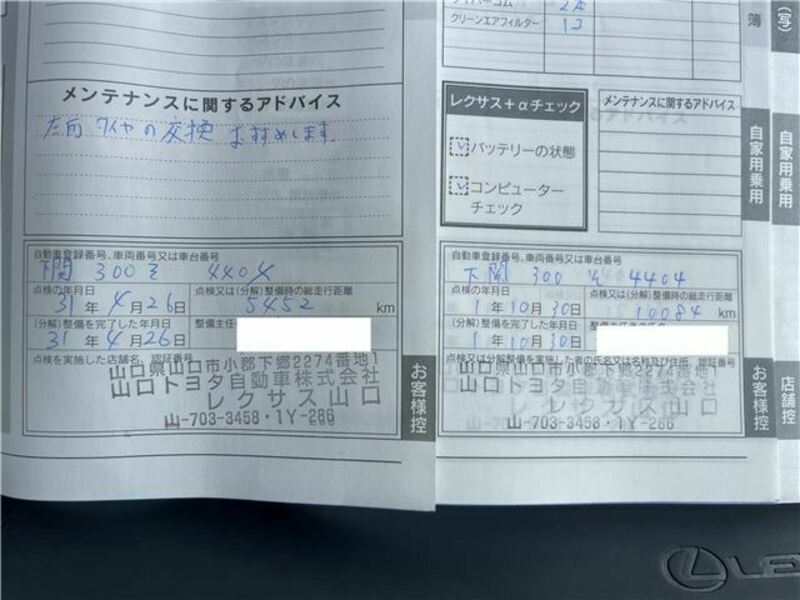 メンテナンスに関するアドバイス
左前 タイヤの交換 おすすめします。
自動車登録番号、車両番号又は車台番号
下関 300 そ 4404
点検の年月日
31年 4月26日
点検又は(分解)整備時の総走行距離
5452 km
(分解)整備を完了した年月日
31年 4月26日
整備主任
点検を実施した店舗名、認証番号
山口県山口市小郡下郷2274番地1
山口トヨタ自動車株式会社
レクサス山口
山-703-3458・1Y-286
お客様控
クリーンエアフィルター 13
レクサス+αチェック
バッテリーの状態
コンピューター
チェック
メンテナンスに関するアドバイス
自動車登録番号、車両番号又は車台番号
下関 300 そ 4404
点検の年月日
1年 10月30日
点検又は(分解)整備時の総走行距離
10084 km
(分解)整備を完了した年月日
1年 10月30日
点検又は分解整備を実施した者の氏名又は名称及び住所、認証番号
山口県山口市小郡下郷2274番地1
山口トヨタ自動車株式会社
レクサス山口
山-703-3458・1Y-286
お客様控
簿
自家用乗用
(写)
自家用乗用
店舗控
LE